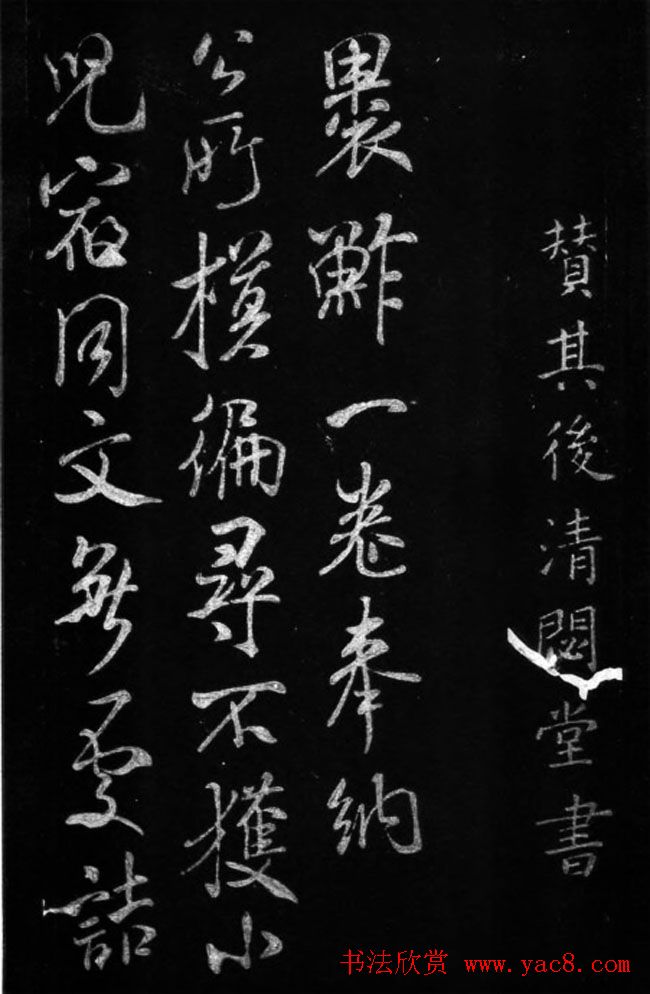 赞其後清閟堂書
裹鮓一卷奉納
公所模徧尋不獲小
兒宿同文無處詰
书法欣赏 www.yac8.com